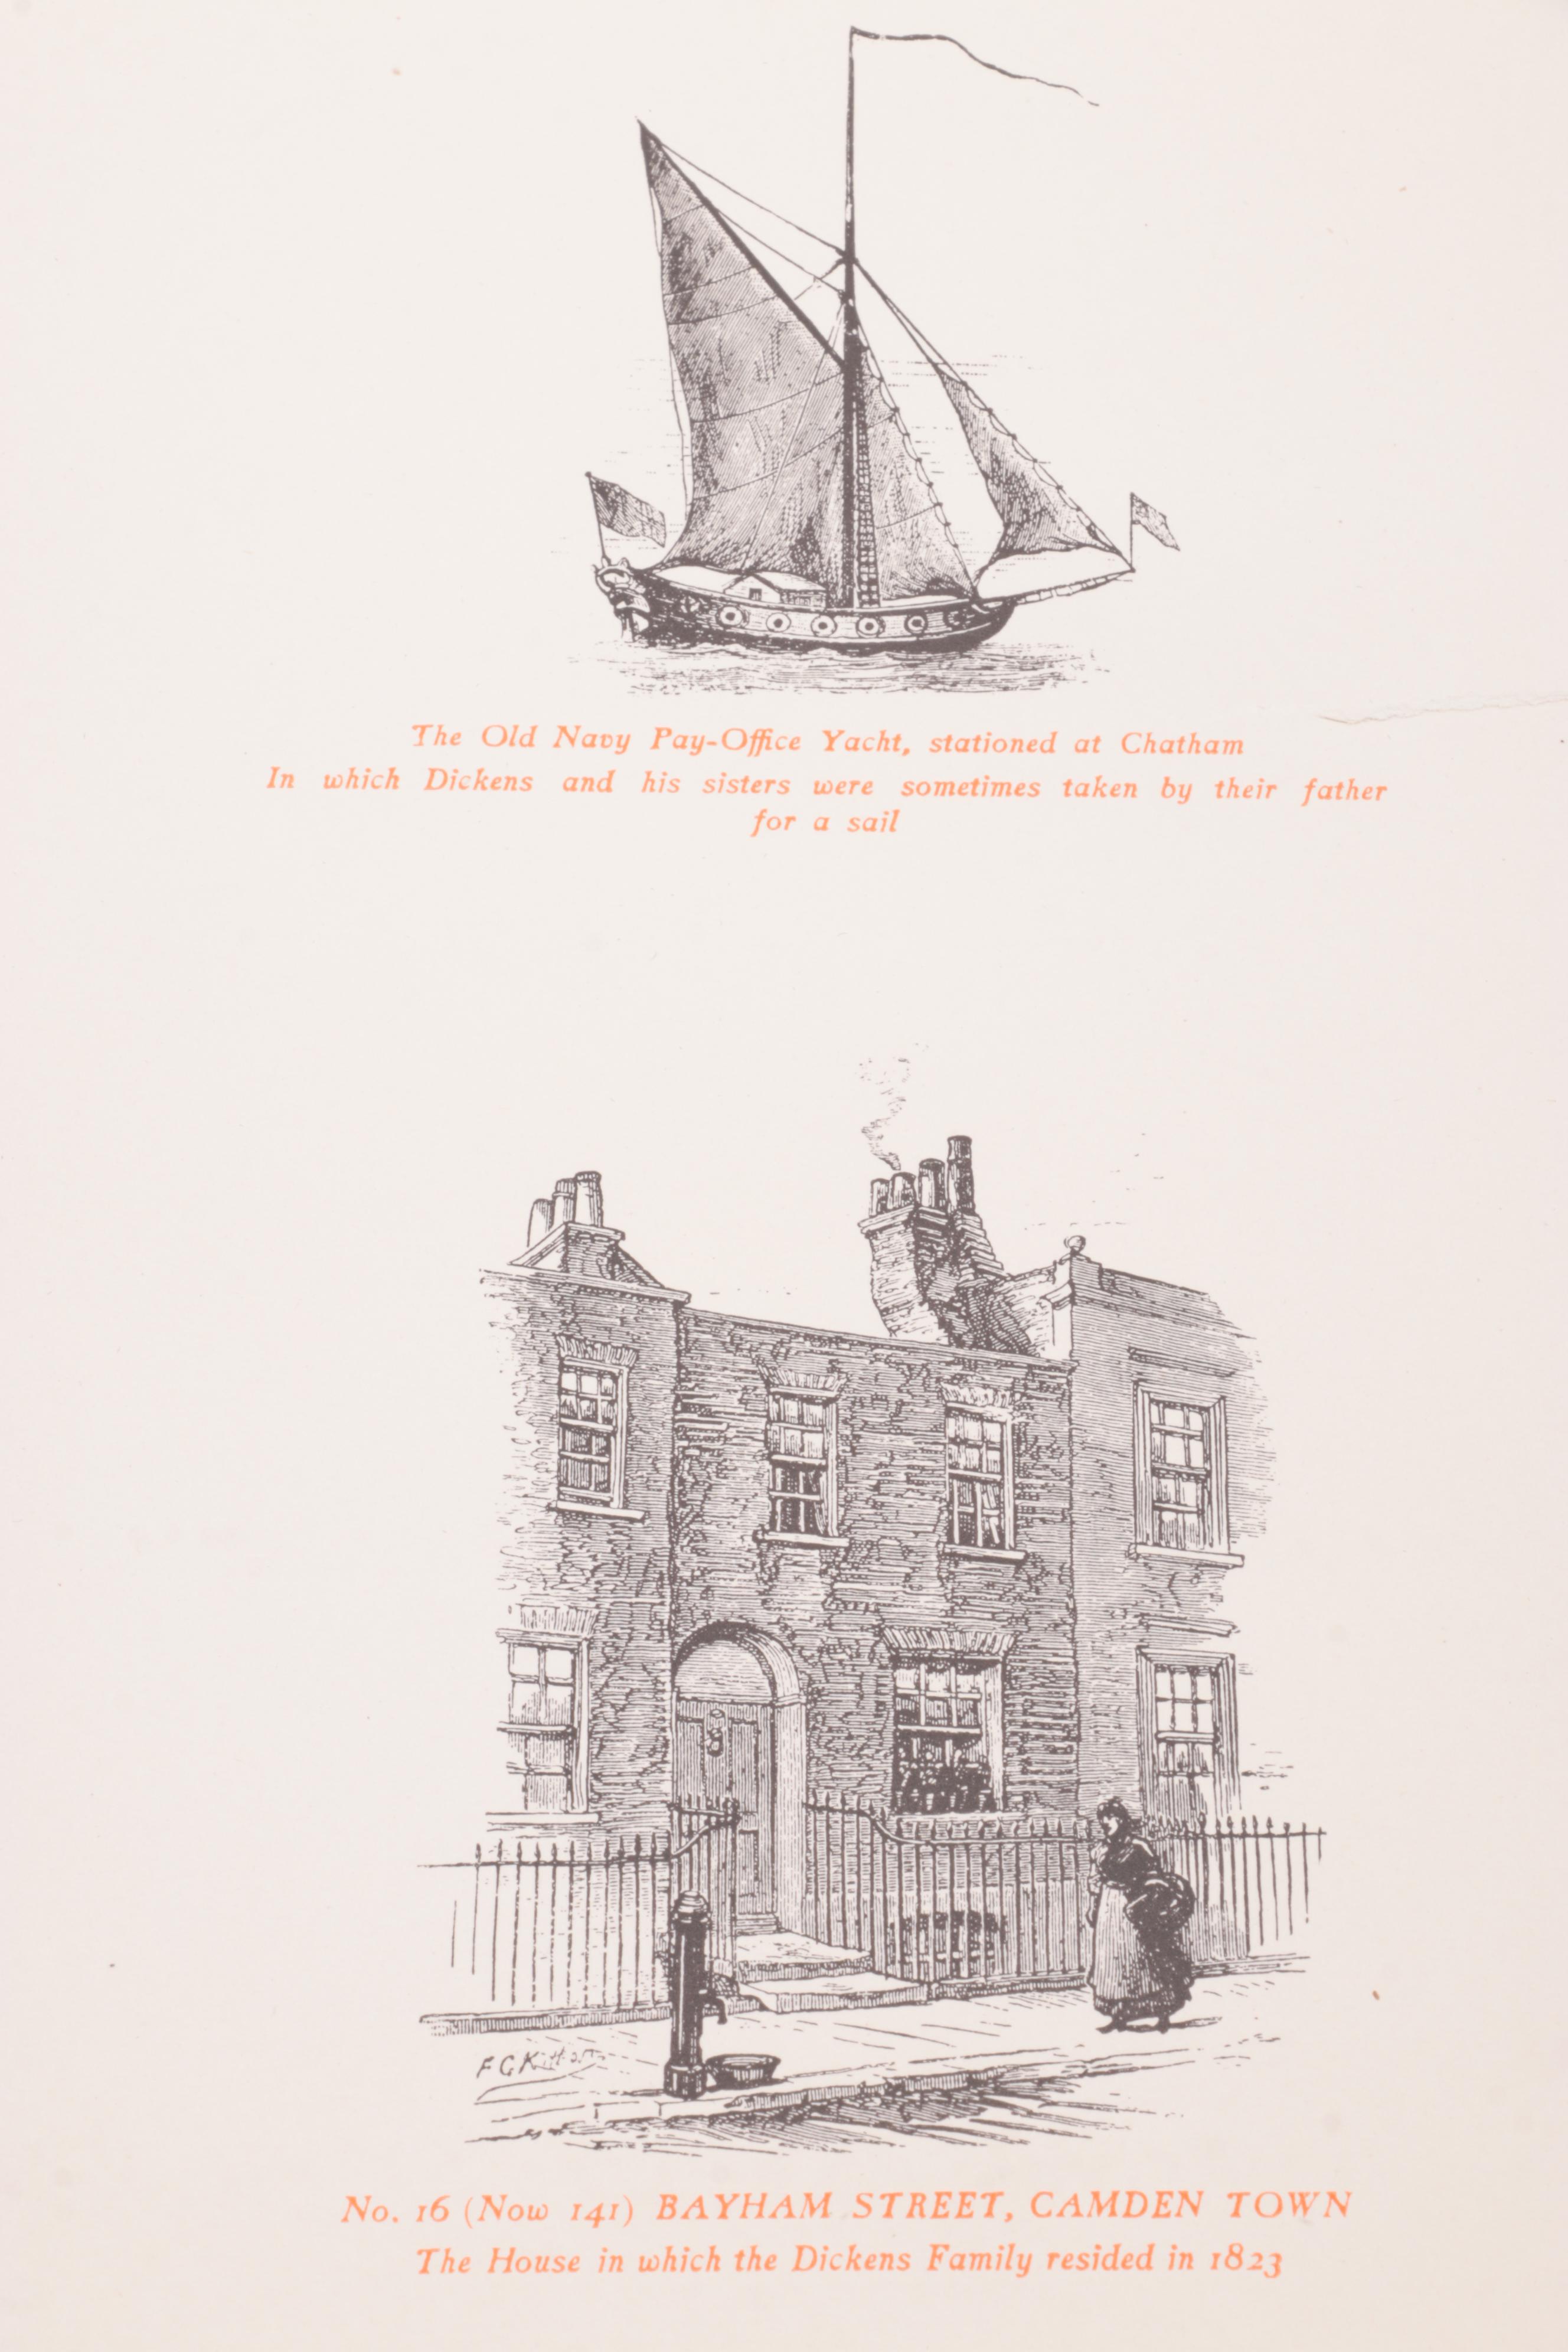 The Old Navy Pay-Office Yacht, stationed at Chatham
In which Dickens and his sisters were sometimes taken by their father
for a sail
F G Kitton
No. 16 (Now 141) BAYHAM STREET, CAMDEN TOWN
The House in which the Dickens Family resided in 1823